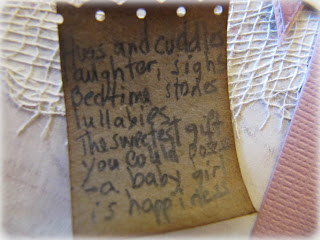 Hugs and cuddles
laughter, sighs
Bedtime stories
lullabies
The sweetest gift
you could possess
-a baby girl
is happiness